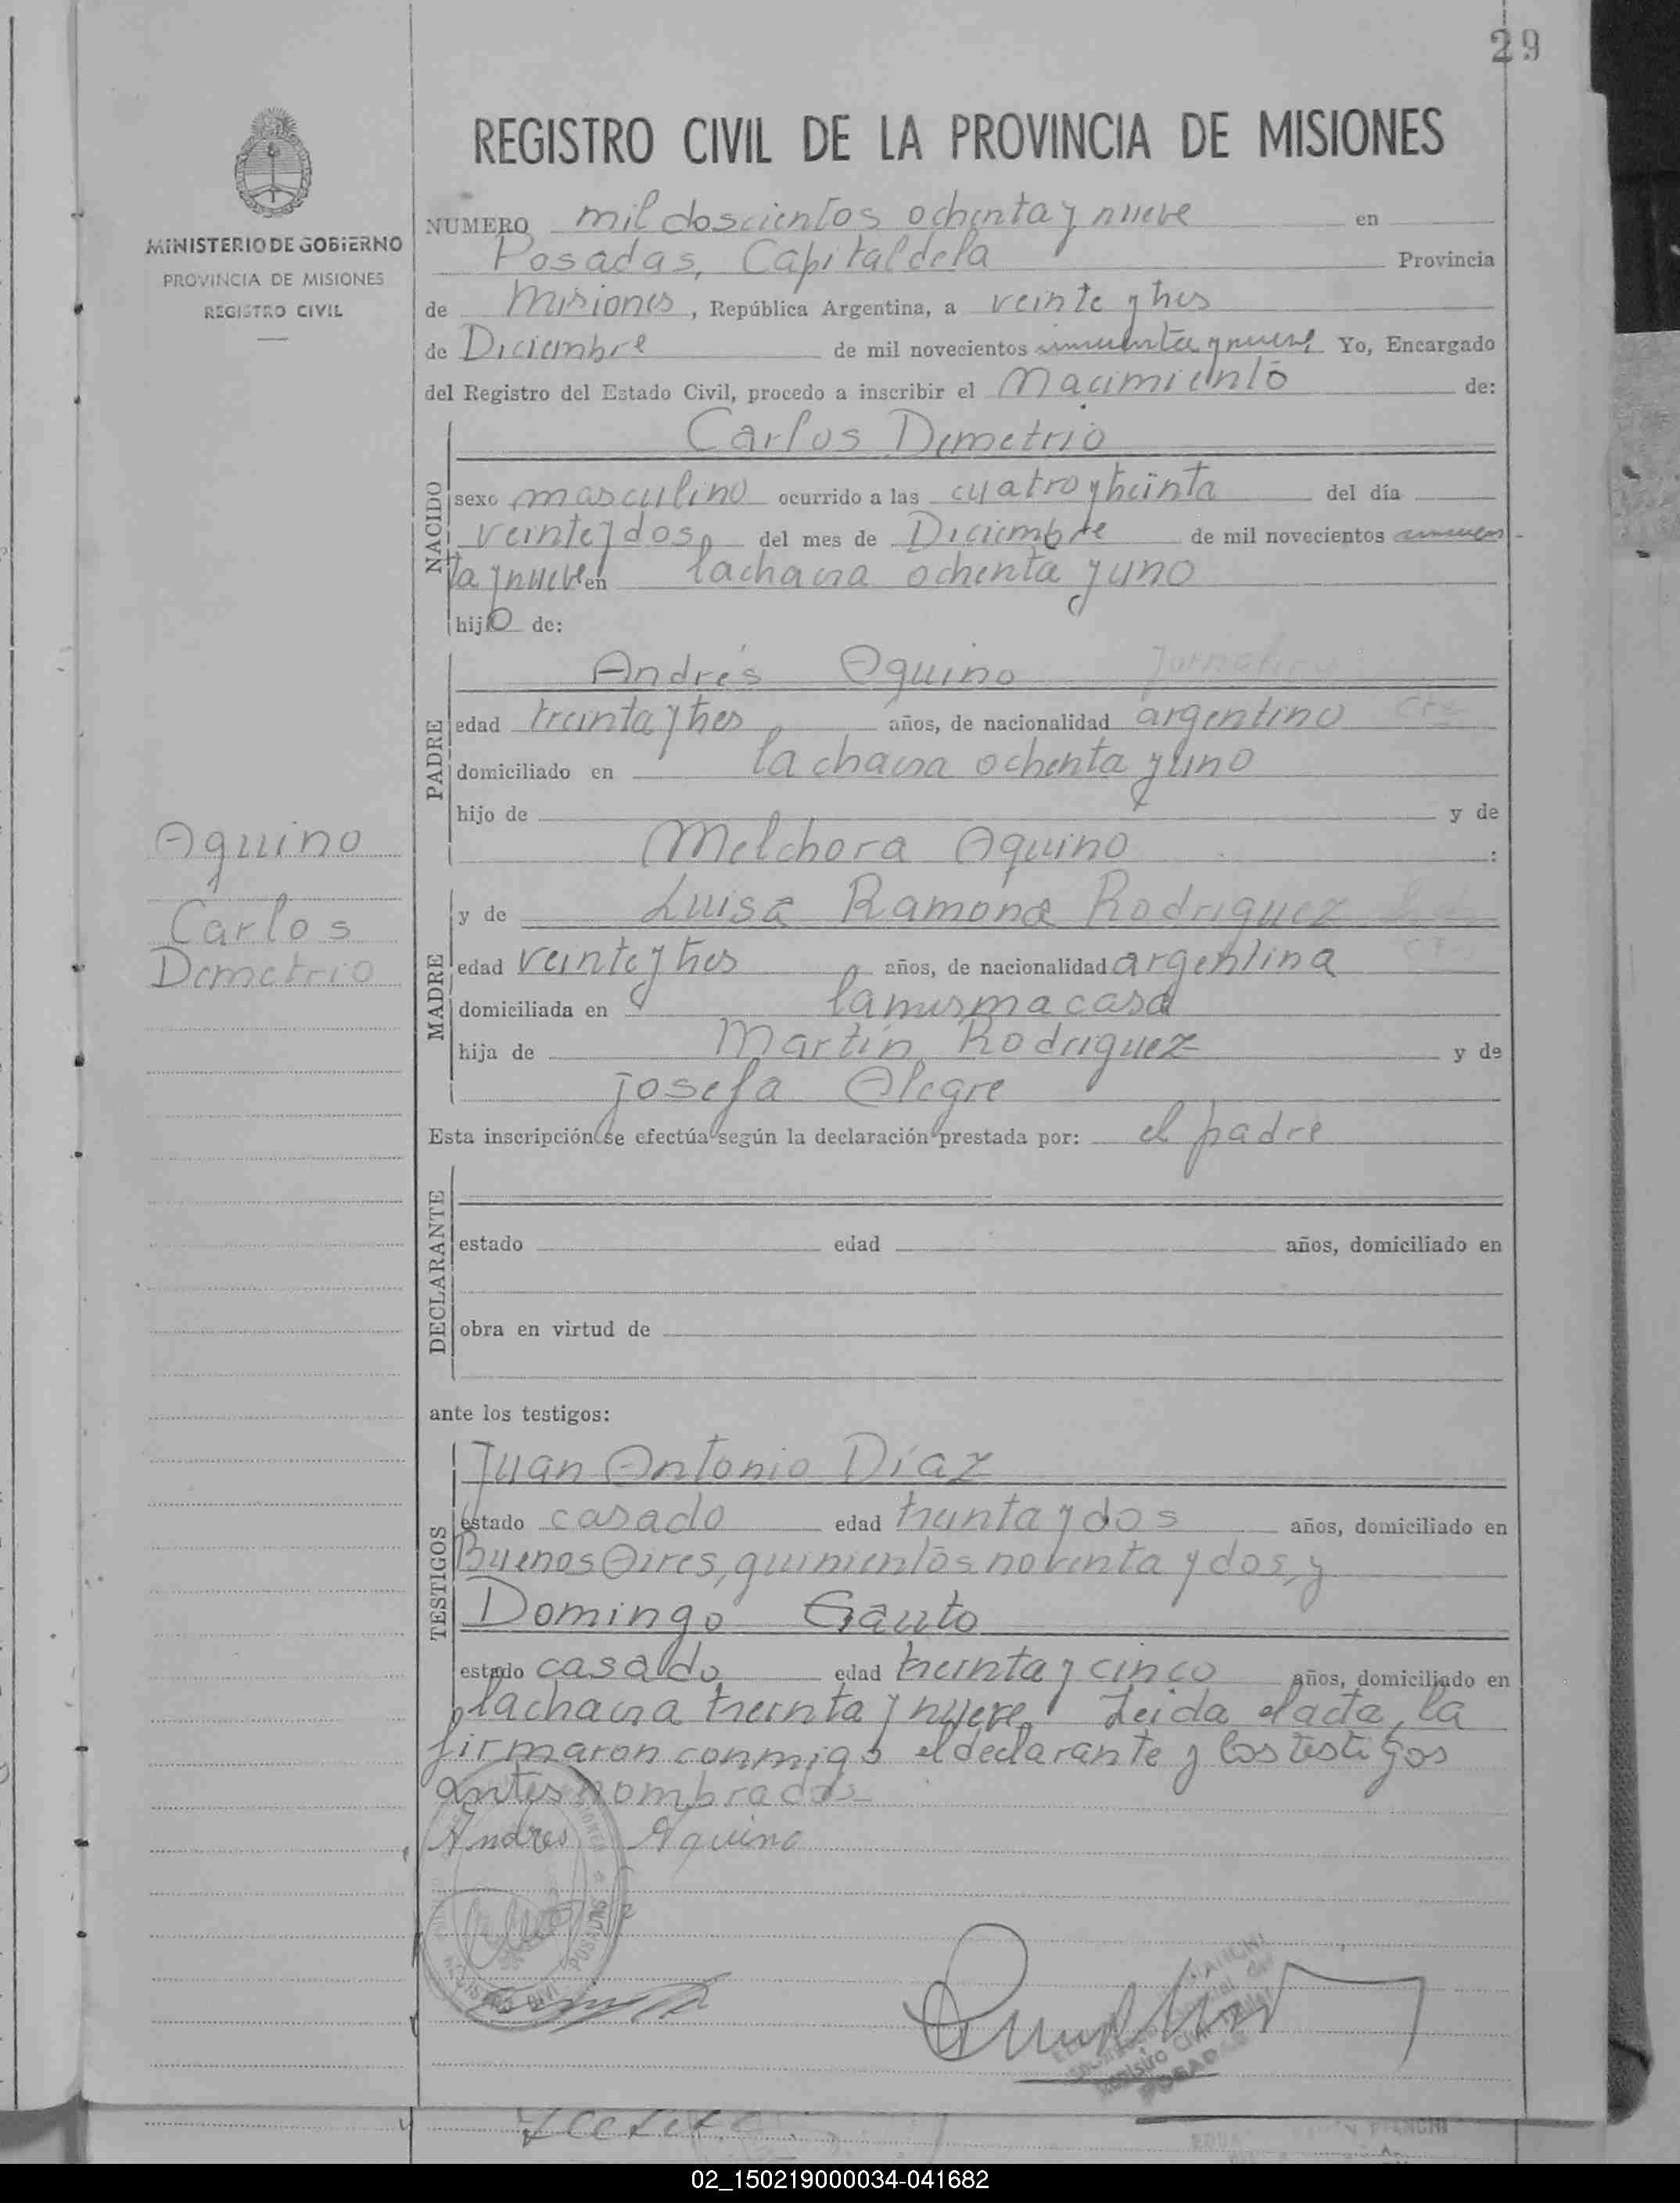 29
REGISTRO CIVIL DE LA PROVINCIA DE MISIONES
MINISTERIO DE GOBIERNO
PROVINCIA DE MISIONES
REGISTRO CIVIL
NUMERO mil doscientos ochenta y nueve en
Posadas, Capital de la Provincia
de Misiones, República Argentina, a veinte y tres
de Diciembre de mil novecientos cincuenta y nueve Yo, Encargado
del Registro del Estado Civil, procedo a inscribir el Nacimiento de:
NACIDO
Carlos Demetrio
sexo masculino ocurrido a las cuatro y treinta del día
veinte y dos del mes de Diciembre de mil novecientos cincuen-
ta y nueve en la chacra ochenta y uno
hijo de:
PADRE
Andrés Aquino Jornalero
edad treinta y tres años, de nacionalidad argentino
domiciliado en la chacra ochenta y uno
hijo de y de
Melchora Aquino :
Aquino
Carlos
Demetrio
MADRE
y de Luisa Ramona Rodriguez
edad veinte y tres años, de nacionalidad argentina
domiciliada en la misma casa
hija de Martín Rodriguez y de
Josefa Alegre
Esta inscripción se efectúa según la declaración prestada por: el padre
DECLARANTE
estado edad años, domiciliado en
obra en virtud de
ante los testigos:
TESTIGOS
Juan Antonio Díaz
estado casado edad treinta y dos años, domiciliado en
Buenos Aires, quinientos noventa y dos, y
Domingo Gauto
estado casado edad treinta y cinco años, domiciliado en
la chacra treinta y nueve. Leida el acta, la
firmaron conmigo el declarante y los testigos
antes nombrados
Andres Aquino
POSADAS
BIANCHI
02_150219000034-041682